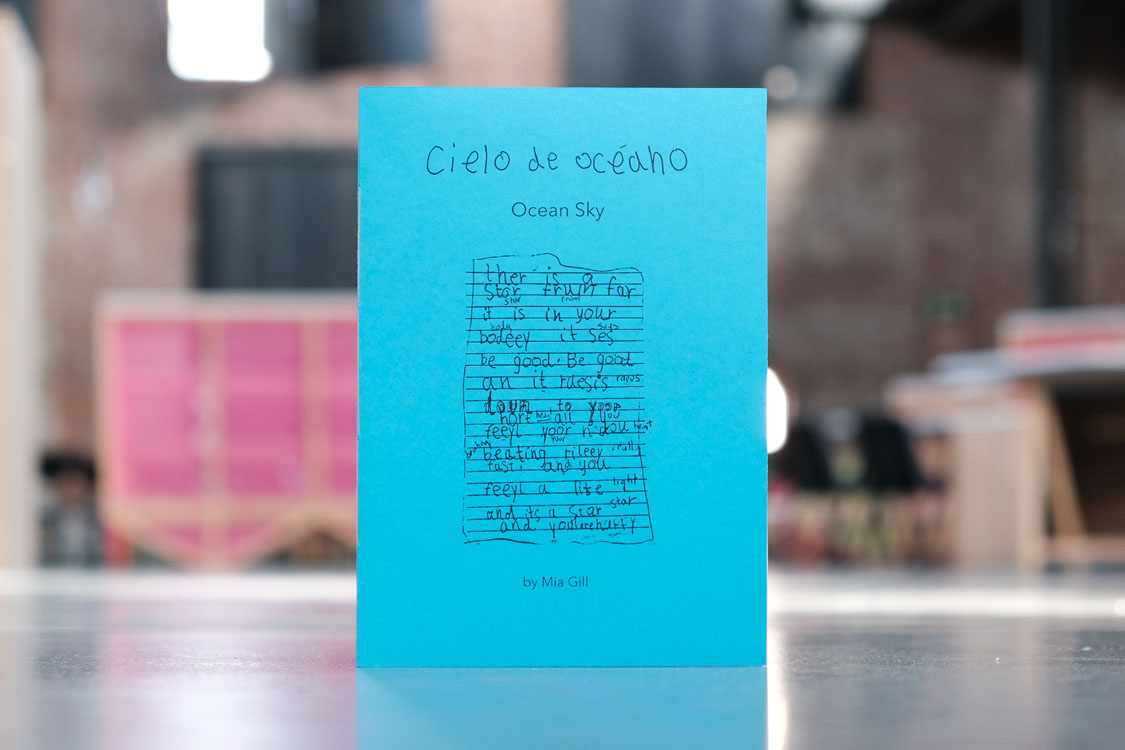 Cielo de océano
Ocean Sky
ther is a
star frum far
star from
it is in your
body says
bodeey it ses
be good. Be good
an it raesis races
down to yoor
hort heart all you
feeyl yoor heart
your
beating rileey really
fast. and you
feeyl a lite light
and its a star star
and you are happy
by Mia Gill